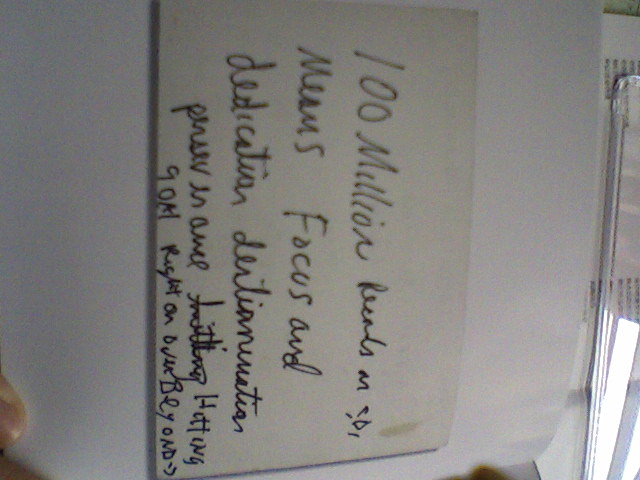 100 Million Reads on SD,
Means Focus and
dedication deitiamination
persev er ance hitting Hitting
90M Right on over BEYOND->